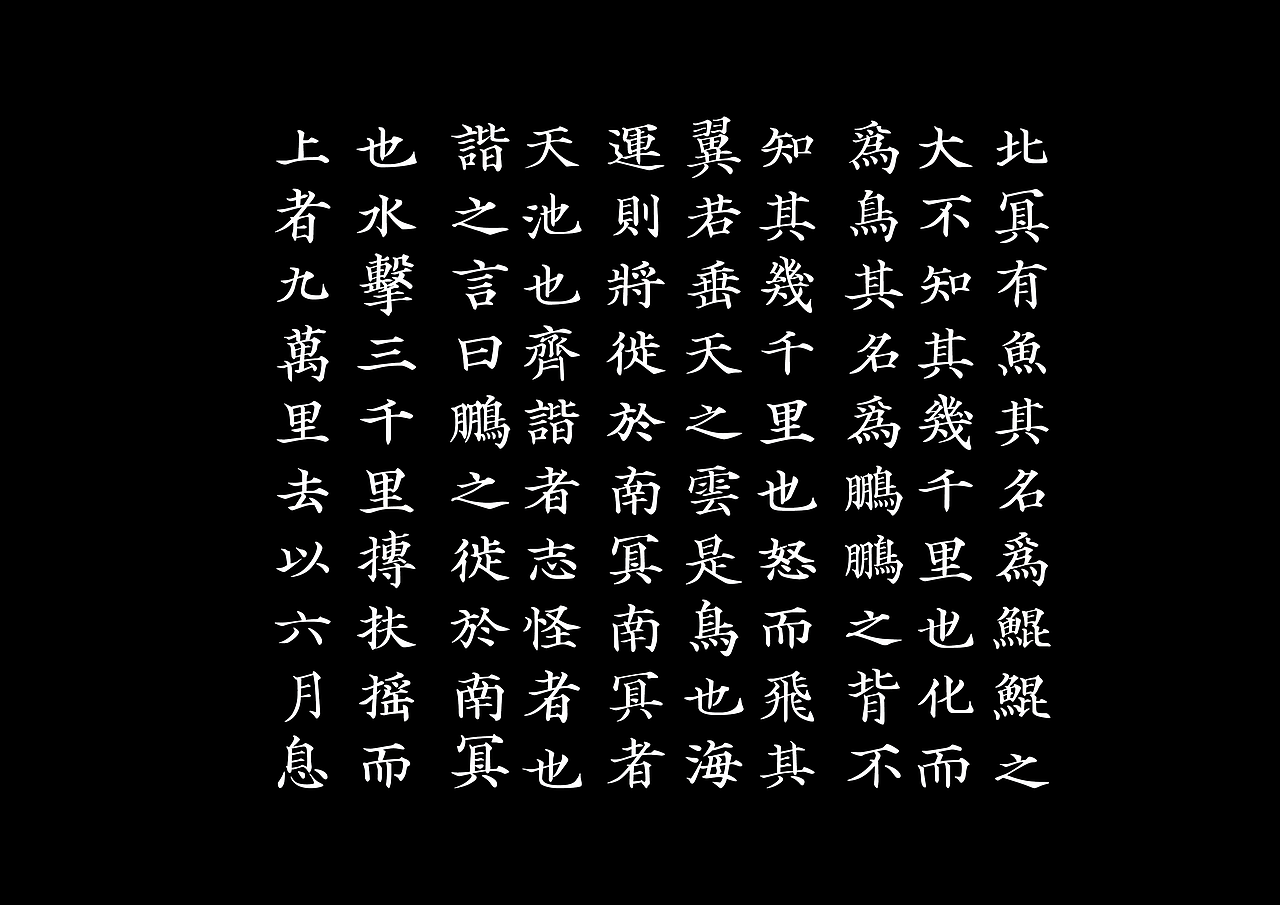 北冥有魚其名爲鯤鯤之
大不知其幾千里也化而
爲鳥其名爲鵬鵬之背不
知其幾千里也怒而飛其
翼若垂天之雲是鳥也海
運則將徙於南冥南冥者
天池也齊諧者志怪者也
諧之言曰鵬之徙於南冥
也水擊三千里摶扶摇而
上者九萬里去以六月息